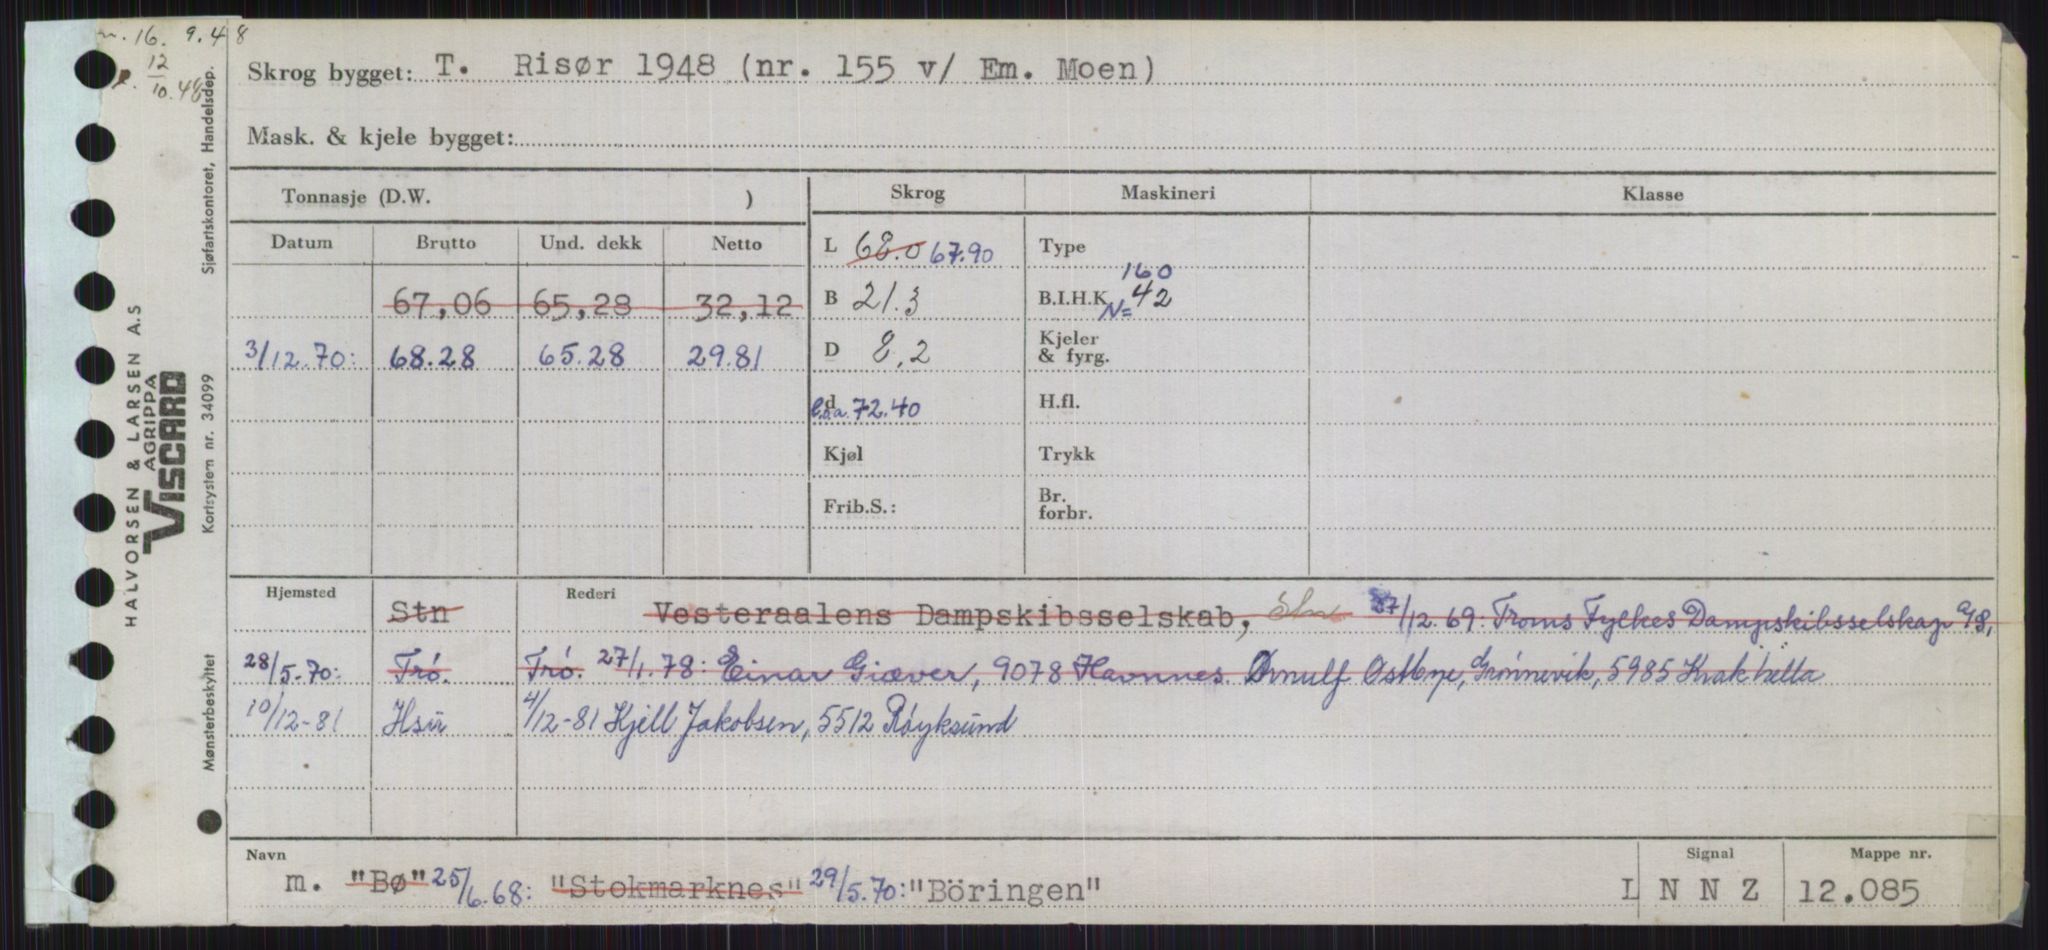 m. 16. 9.48
12/10.48
Skrog bygget: T. Risør 1948 (nr. 155 v/ Em. Moen)
Mask. & kjele bygget:
Tonnasje (D.W. )
Skrog
Maskineri
Klasse
Datum Brutto Und. dekk Netto
L 68.0 67.90
Type
67,06 65,28 32,12
B 21.3
B.I.H.K. 160
N= 42
3/12.70: 68.28 65.28 29.81
D 8,2
Kjeler
& fyrg.
d l.o.a. 72.40
H.fl.
Kjøl
Trykk
Frib.S.:
Br.
forbr.
Hjemsted
Rederi
Stn Vesteraalens Dampskibsselskab, Stn 27/12.69: Troms Fylkes Dampskibsselskap A/S,
28/5.70: Trö. Trö. 27/1.78: Einar Giæver, 9078 Havnnes. Arnulf Østbye, Grønnevik, 5985 Krakhella
10/12-81 Hsu 4/12-81 Kjell Jakobsen, 5512 Röyksund
Navn
m. "Bø" 25/6.68: "Stokmarknes" 29/5.70: "Böringen"
Signal
L N N Z
Mappe nr.
12.085
HALVORSEN & LARSEN A.S
AGRIPPA
VISCARD
Sjøfartskontoret, Handelsdep.
Kortsystem nr. 34099
Mønsterbeskyttet